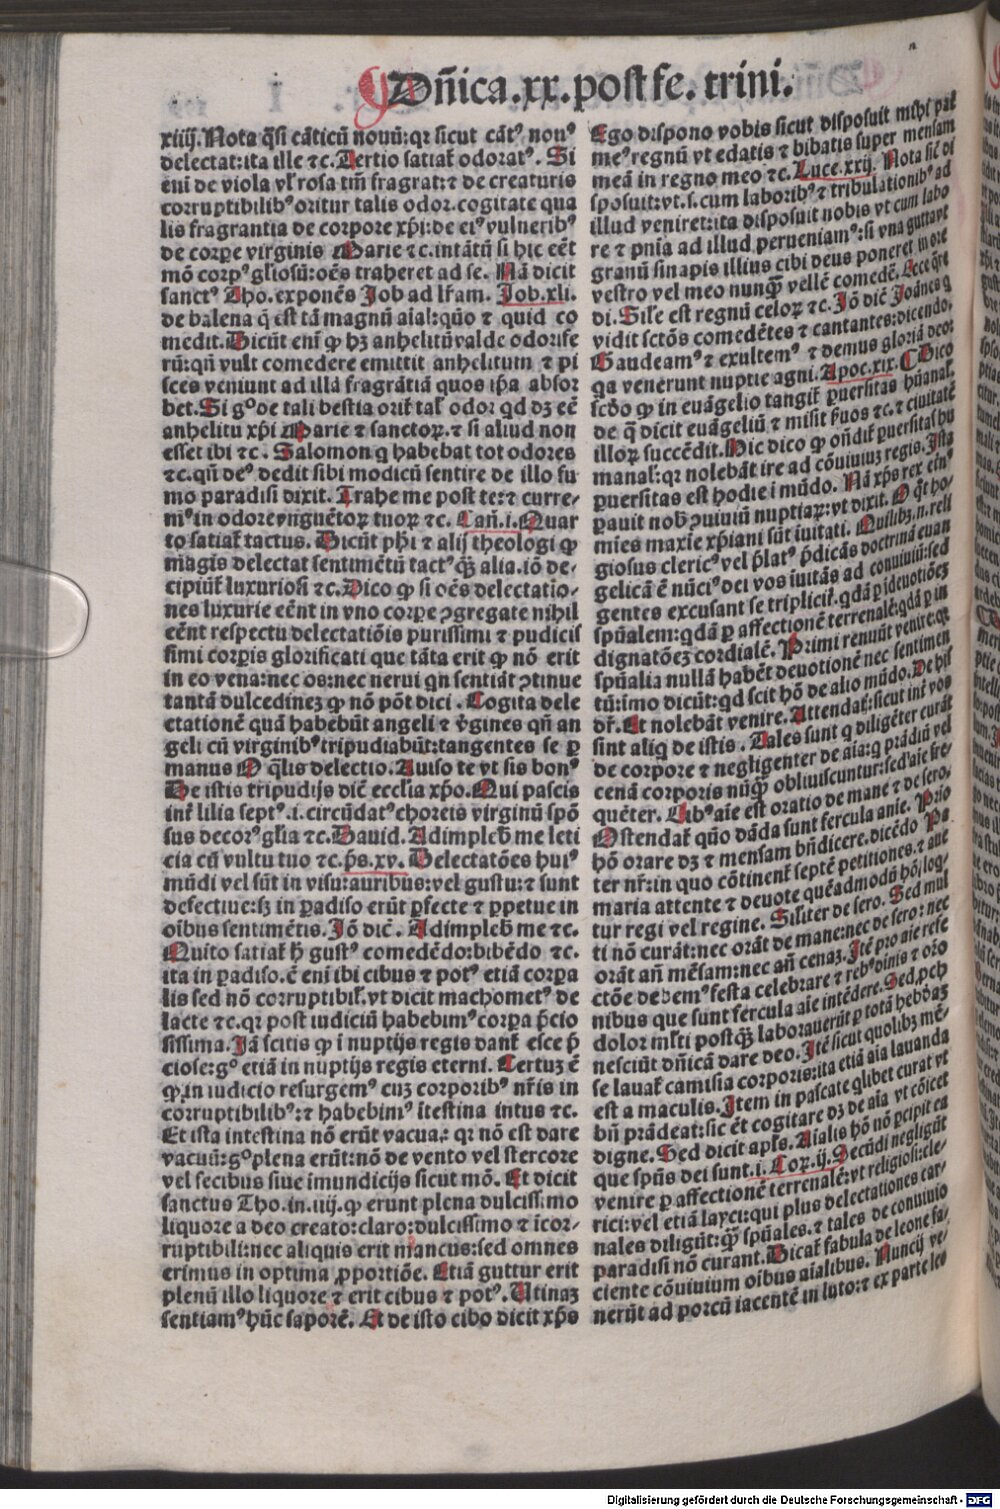 Dn̄ica.xx.post fe.trini.
xiiij. Nota q̄si cāticū nouū: qꝛ sicut cātꝰ nouꝰ
delectat: ita ille ⁊c. Tertio satiat̄ odoratꝰ. Si
eni de viola vl̓ rosa tm̄ fragrat: ⁊ de creaturis
corruptibilibꝰ oritur talis odor. cogitate qua
lis fragrantia de corpore xp̄i: de eiꝰ vulneribꝰ
de corpe virginis Marie ⁊c. intātū si hic eēt
mō corpꝰ gliosū: oēs traheret ad se. Nā dicit
sanctꝰ Tho. exponēs Job ad lr̄am. Job.xli.
de balena q̄ est tā magnū aīal: quō ⁊ quid co
medit. Dicūt eni ꝙ hꝫ anhelitū valde odorife
rū: qn̄ vult comedere emittit anhelitum ⁊ pi
sces veniunt ad illā fragrātiā quos ip̄a absor
bet. Si gͦ de tali bestia orit̄ tal̓ odor qd dꝫ eē
anhelitu xp̄i Marie ⁊ sanctoꝝ. ⁊ si aliud non
esset ibi ⁊c. Salomon q habebat tot odores
⁊c. qn̄ deꝰ dedit sibi modicū sentire de illo fu
mo paradisi dixit. Trahe me post te: ⁊ curre-
mꝰ in odore vnguētoꝝ tuoꝝ ⁊c. Can̄.i. Quar
to satiat̄ tactus. Dicūt ph̄i ⁊ alij theologi ꝙ
magis delectat sentimētū tactꝰ q̄ꝫ alia. iō de-
cipiūt̄ luxuriosi ⁊c. Dico ꝙ si oēs delectatio-
nes luxurie eēnt in vno corpe ꝯgregate nihil
eēnt respectu delectatiōis purissimi ⁊ pudicis
simi corpis glorificati que tāta erit ꝙ nō erit
in eo vena: nec os: nec nerui qn sentiāt ꝯtinue
tantā dulcedinez ꝙ nō pōt dici. Cogita dele
ctationē quā habebūt angeli ⁊ v̓gines qn̄ an
geli cū virginibꝰ tripudiabūt: tangentes se ꝑ
manus O q̄lis delectio. Auiso te vt sis bonꝰ
De istis tripudijs dic̄ ecclīa xp̄o. Qui pascis
int̄ lilia septꝰ. i. circūdatꝰ choreis virginū spō
sus decorꝰ glīa ⁊c. Dauid. Adimpleb̄ me leti
cia cū vultu tuo ⁊c. p̄s.xv. Delectatōes huiꝰ
mūdi vel sūt in visu: auribus: vel gustu: ⁊ sunt
defectiue: sꝫ in ꝑadiso erūt ꝑfecte ⁊ ꝑpetue in
oībus sentimētis. Jō dic̄. Adimpleb̄ me ⁊c.
Quito satiat̄ h̄ gustꝰ comedēdo: bibēdo ⁊c.
ita in ꝑadiso. ē eni ibi cibus ⁊ potꝰ etiā corpa
lis sed nō corruptibil̓. vt dicit machometꝰ de
lacte ⁊c. qꝛ post iudiciū habebimꝰ corpa p̄cio
sissima. Jā scitis ꝙ ī nuptijs regis dant̄ esce p̄
ciose: gͦ etiā in nuptijs regis eterni. Certuꝫ ē
ꝙ in iudicio resurgemꝰ cuꝫ corporibꝰ nr̄is in
corruptibilibꝰ: ⁊ habebimꝰ ītestina intus ⁊c.
Et ista intestina nō erūt vacua: qꝛ nō est dare
vacuū: gͦ plena erūt: nō de vento vel stercore
vel fecibus siue īmundicijs sicut mō. Et dicit
sanctus Tho. in .iiij. ꝙ erunt plena dulcissimo
liquore a deo creato: claro: dulcissimo ⁊ īcor-
ruptibili: nec aliquis erit mancus: sed omnes
erimus in optima ꝓportiōe. Etiā guttur erit
plenū illo liquore ⁊ erit cibus ⁊ potꝰ. Utinaꝫ
sentiamꝰ hūc saporē. Et de isto cibo dicit xp̄s
Ego dispono vobis sicut disposuit mihi pat̄
meꝰ regnū vt edatis ⁊ bibatis super mensam
meā in regno meo ⁊c. Luce.xxij. Nota sic̄ di
sposuit: vt. s. cum laboribꝰ ⁊ tribulationibꝰ ad
illud veniret: ita disposuit nobis vt cum labo
re ⁊ pnīa ad illud perueniamꝰ: si vna gutta vt
granū sinapis illius cibi deus poneret in ore
vestro vel meo nunq̄ꝫ vellē comedē. Ecce q̄re
di. Sil̓e est regnū celoꝝ ⁊c. Jō dic̄ Joānes q
vidit sctōs comedētes ⁊ cantantes: dicendo.
Gaudeamꝰ ⁊ exultemꝰ ⁊ demus gloriā deo:
qa venerunt nuptie agni. Apoc.xix. Dico
scd̄o ꝙ in euāgelio tangit̄ ꝑuersitas hūana:
de q̄ dicit euāgeliū ⁊ misit ẜuos ⁊c. ⁊ ciuitatē
illoꝝ succēdit. Hic dico ꝙ on̄dit̄ ꝑuersitas hu
mana: qꝛ nolebāt ire ad cōuiuiuꝫ regis. Ista
ꝑuersitas est hodie ī mūdo. Nā xp̄s rex
pauit nob̄ ꝯuiuiū nuptiaꝝ: vt dixit. O q̄t ho-
mies maxīe xp̄iani sūt īuitati. Quilibꝫ. n. reli
giosus clericꝰ vel p̄latꝰ p̄dicās doctrinā euan
gelicā ē nūciꝰ dei vos īuitās ad conuiuiū: sed
gentes excusant se triplicit̄. qdā ꝑ īdeuotiōeꝫ
spūalem: qdā ꝑ affectionē terrenalē: qdā ꝑ in
dignatōeꝫ cordialē. Primi renuūt venire: qꝛ
spūalia nullā habēt deuotionē nec sentimen
tū: īmo dicūt: qd scit hō de alio mūdo. De his
dr̄. Et nolebāt venire. Attendat̄: sicut int̄ vos
sint aliq de istis. Tales sunt q diligēter curāt
de corpore ⁊ negligenter de aīa: q prādiū vel
cenā corporis nūq̄ꝫ obliuiscuntur: sed aīe fre
quēter. Cibꝰ aīe est oratio de mane ⁊ de sero.
Ostendat̄ quō dāda sunt fercula anie. Prio
hō orare dꝫ ⁊ mensam bn̄dicere. dicēdo Pa
ter nr̄: in quo cōtinent̄ septē petitiones. ⁊ aue
maria attente ⁊ deuote quēadmodū hō loq-
tur regi vel regine. Sil̓iter de sero. Sed mul
ti nō curāt: nec orāt de mane: nec de sero: nec
orāt an̄ mēsam: nec an̄ cenaꝫ. Jtē pro aīe refe
ctōe debemꝰ festa celebrare ⁊ rebꝰ diuis ⁊ orō
nibus que sunt fercula aīe intēdere. Sed ꝓch
dolor ml̓ti postq̄ꝫ laborauerūt ꝑ totā hebdaꝫ
nesciūt dn̄icā dare deo. Jtē sicut quolibꝫ mē-
se lauat̄ camisia corporis: ita etiā aīa lauanda
est a maculis. Item in pascate qlibet curat vt
bn̄ prādeat: sic ēt cogitare dꝫ de aīa vt cōicet
digne. Sed dicit apl̓s. Aīalis hō nō ꝑcipit ea
que spūs dei sunt. i. Coꝝ.ij. Secūdi negligūt
venire ꝑ affectionē terrenalē: vt religiosi: cle-
rici: vel etiā layci: qui plus delectationes car-
nales diligūt: q̄ꝫ spūales. ⁊ tales de conuiuio
paradisi nō curant. Dicat̄ fabula de leone fa-
ciente cōuiuium oībus aīalibus. Nuncij ve-
nerūt ad porcū iacentē in luto: ⁊ ex parte leo
Digitalisierung gefördert durch die Deutsche Forschungsgemeinschaft - DFG